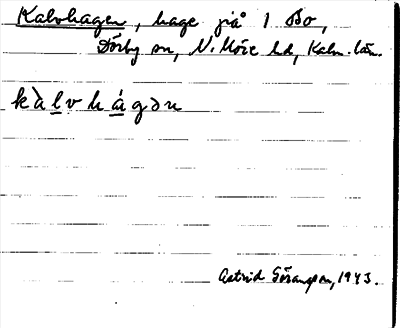 Kalvhagen, hage på 1 Bo,
Förby sn, N. Möre hd, Kalm. län.
kàlvhágən
Astrid Göransson, 1943.